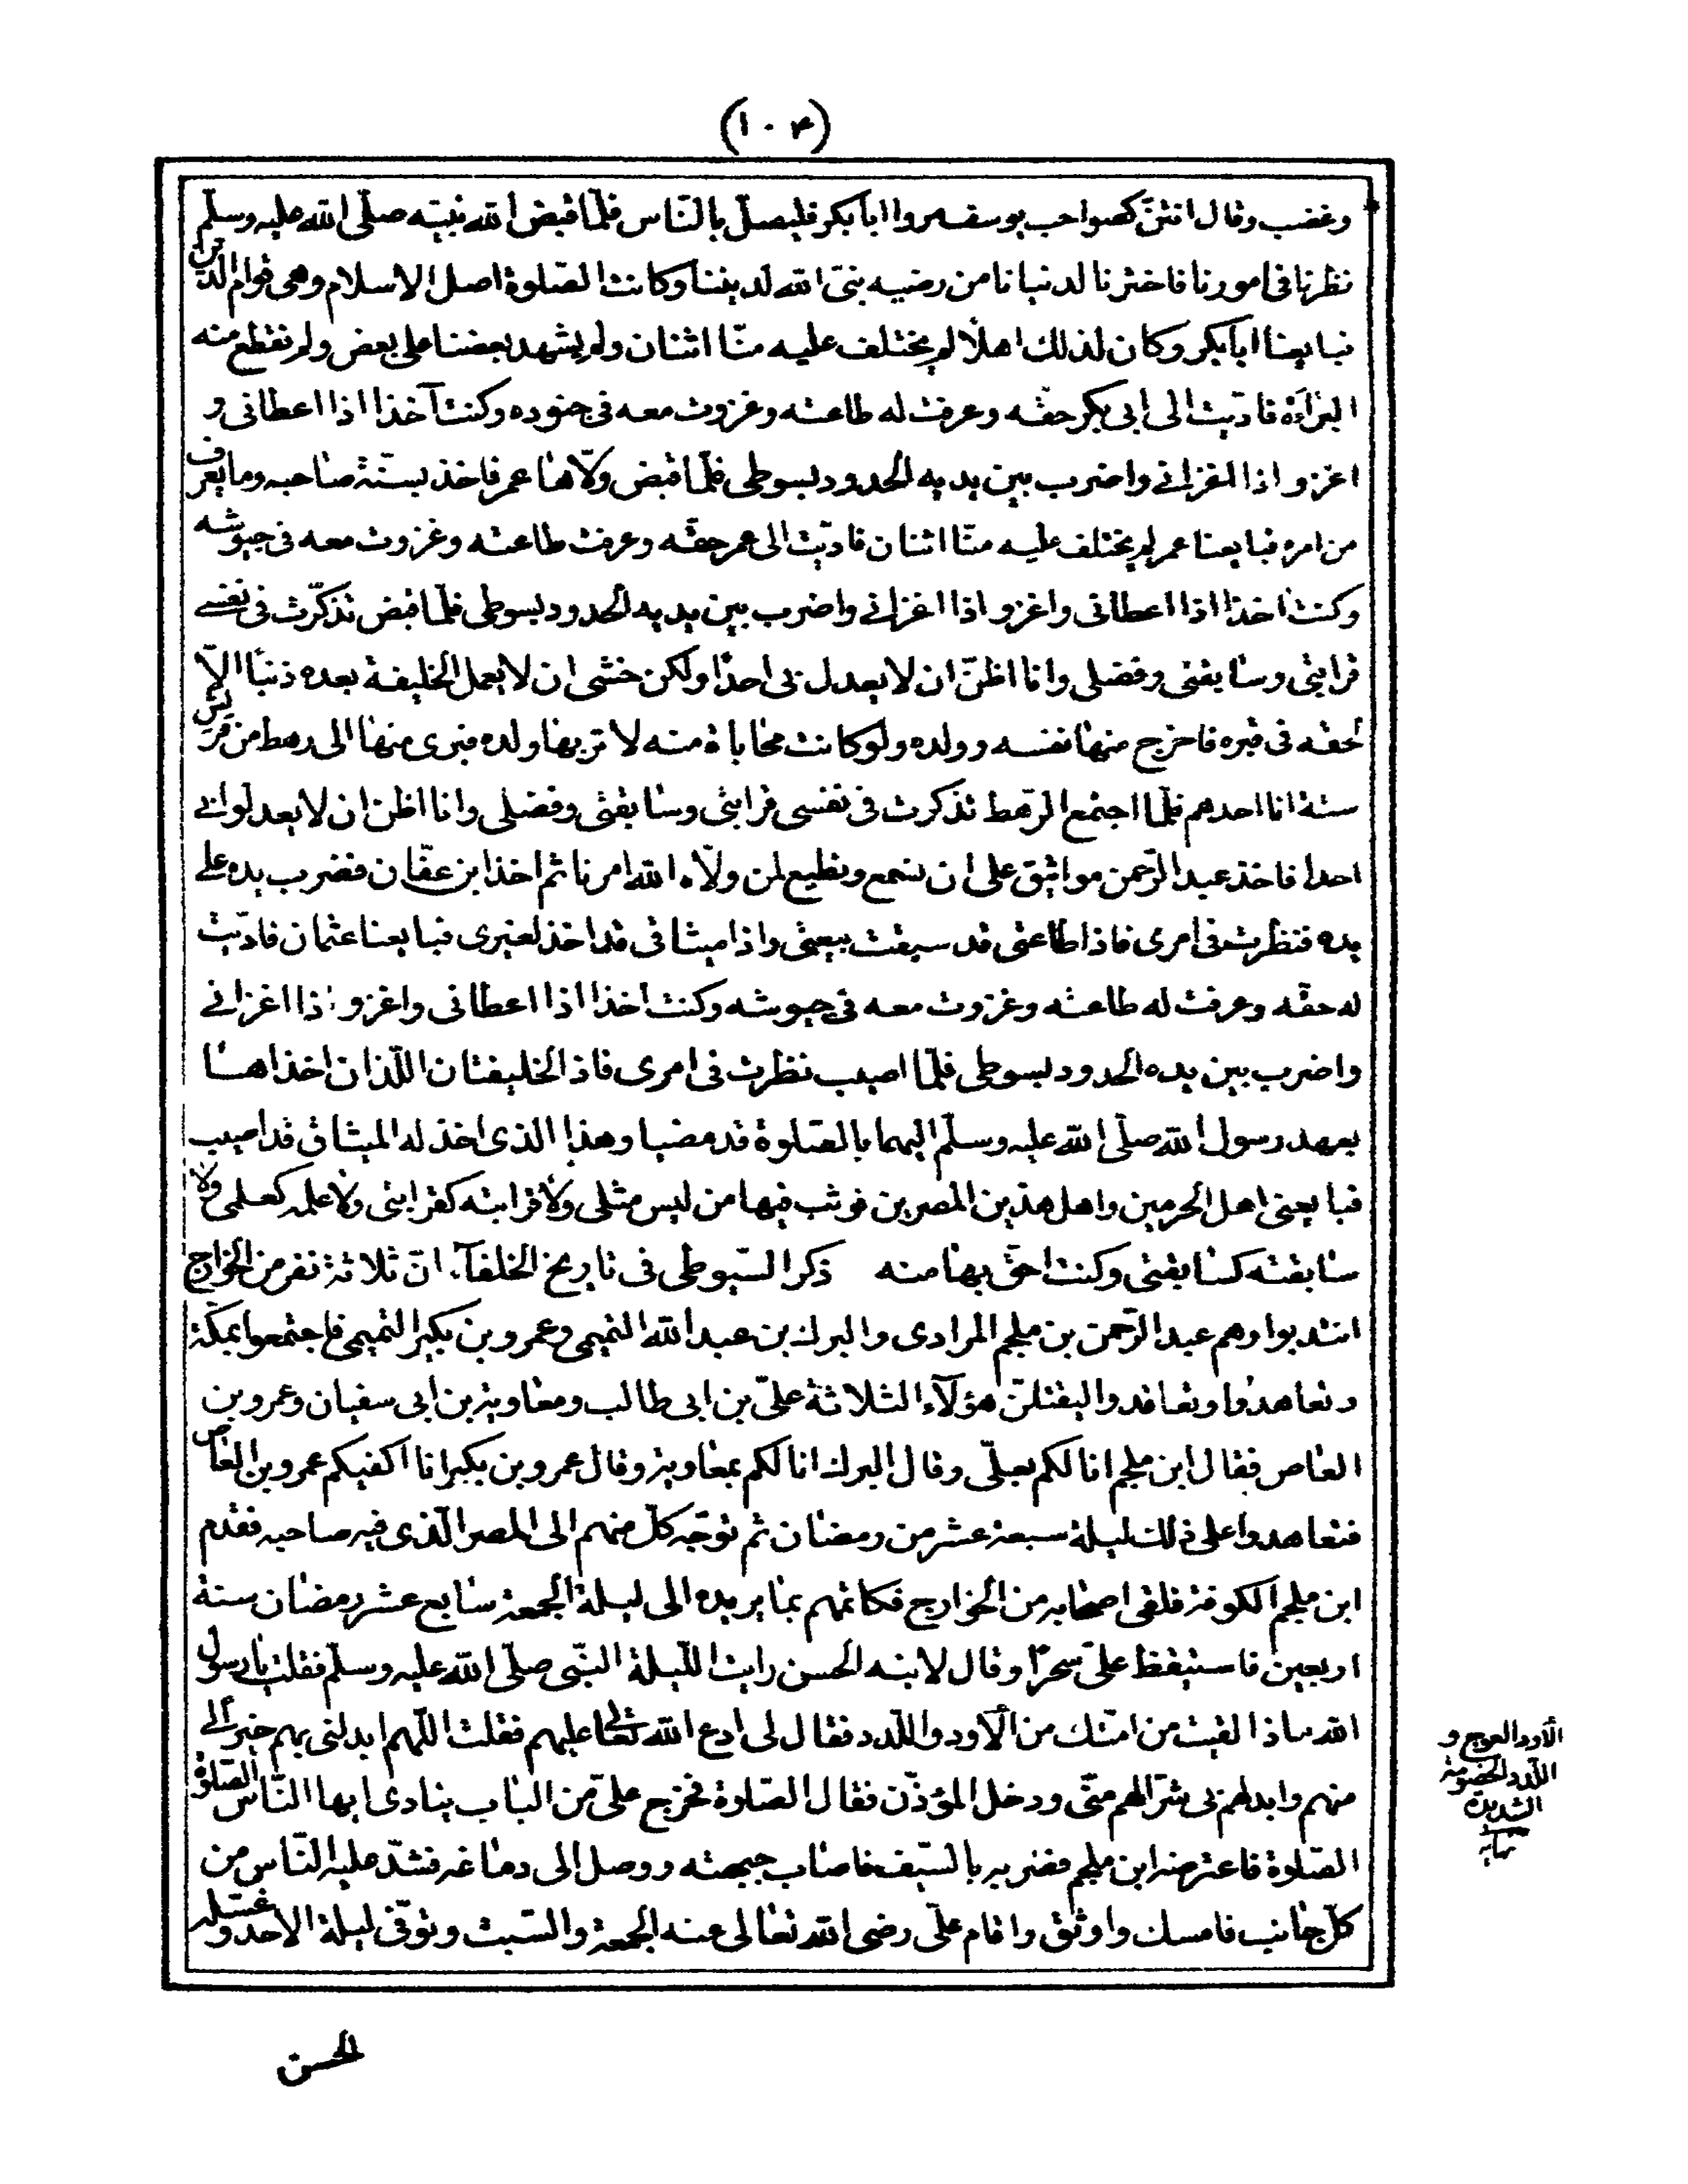 (١٠٤)
وغضب وقال انتنّ كصواحب يوسف مروا ابابكر فليصلّ بالنّاس فلمّا قبض الله نبيّه صلّى الله عليه وسلّم
نظرنا فى امورنا فاخترنا لدنيانا من رضيه نبىّ الله لديننا وكانت الصّلوة اصل الاسلام وهى قوام الدّين
فبايعنا ابابكر وكان لذلك اهلًا لم يختلف عليه منّا اثنان ولم يشهد بعضنا على بعض ولم نقطع منه
البراءة فادّيت الى ابى بكر حقّه وعرفت له طاعته وغزوت معه فى جنوده وكنت آخذا اذا اعطانى و
اغزو اذا اغزانى واضرب بين يديه الحدود بسوطى فلمّا قبض ولّاها عمر فاخذ بسنّة صاحبه وما يعرف
من امره فبايعنا عمر لم يختلف عليه منّا اثنان فادّيت الى عمر حقّه وعرفت طاعته وغزوت معه فى جيوشه
وكنت اخذ اذا اعطانى واغزو اذا اغزانى واضرب بين يديه الحدود بسوطى فلمّا قبض تذكّرت فى نفسى
قرابتى وسابقتى وفضلى وانا اظنّ ان لا يعدل بى احدًا ولكن خشى ان لا يعمل الخليفة بعده ذنبًا الّا
لحقه فى قبره فاخرج منها نفسه وولده ولو كانت محاباة منه لاثر بها ولده فبرى منها الى رهط من قريش
ستة انا احدهم فلمّا اجتمع الرّهط تذكرت فى نفسى قرابتى وسابقتى وفضلى وانا اظن ان لا يعدلوا بى
احدا فاخذ عبد الرّحمن مواثيق على ان نسمع ونطيع لمن ولّاه الله امرنا ثم اخذ ابن عفّان فضرب يده على
يده فنظرت فى امرى فاذا طاعتى قد سبقت بيعتى واذا ميثاقى قد اخذ لغيرى فبايعنا عثمان فادّيت
له حقّه وعرفت له طاعته وغزوت معه فى جيوشه وكنت اخذا اذا اعطانى واغزو اذا اغزانى
واضرب بين يده الحدود بسوطى فلمّا اصيب نظرت فى امرى فاذ الخليفتان اللّذان اخذاها
بعهد رسول الله صلّى الله عليه وسلّم اليهما بالصّلوة قد مضيا وهذا الذى اخذ له الميثاق قد اصيب
فبايعنى اهل الحرمين واهل هذين المصرين فوثب فيها من ليس مثلى ولا قرابته كقرابتى ولا علمه كعلمى ولا
سابقته كسابقتى وكنت احقّ بها منه ذكر السّيوطى فى تاريخ الخلفآء انّ ثلاثة نفر من الخوارج
انتدبوا وهم عبد الرّحمن بن ملجم المرادى والبرك بن عبد الله التميمى وعمرو بن بكير التميمى فاجتمعوا بمكّة
وتعاهدوا وتعاقدوا ليقتلنّ هؤلآء الثلاثة علىّ بن ابى طالب ومعاوية بن ابى سفيان وعمرو بن
العاص فقال ابن ملجم انا لكم بعلىّ وقال البرك انا لكم بمعاوية وقال عمرو بن بكير انا اكفيكم عمرو بن العاص
فتعاهدوا على ذلك ليلة سبعة عشر من رمضان ثم توجّه كلّ منهم الى المصر الّذى فيه صاحبه فقدم
ابن ملجم الكوفة فلقى اصحابه من الخوارج فكاتمهم بما يريده الى ليلة الجمعة سابع عشر رمضان سنة
اربعين فاستيقظ علىّ سحرًا وقال لابنه الحسن رايت اللّيلة النّبى صلّى الله عليه وسلّم فقلت يا رسول
الله ماذا لقيت من امّتك من الأود واللّدد فقال لى ادع الله تعالى عليهم فقلت اللّهم ابدلنى بهم خيرا لى
منهم وابدلهم بى شرّا لهم منّى ودخل المؤذّن فقال الصّلوة فخرج علىّ من الباب ينادى ايها النّاس الصّلوة
الصّلوة فاعترضه ابن ملجم فضربه بالسّيف فاصاب جبهته ووصل الى دماغه فشدّ عليه النّاس من
كلّ جانب فامسك واوثق واقام علىّ رضى الله تعالى عنه الجمعة والسّبت وتوفّى ليلة الاحد وغسّله
الأود العوج و
اللّدد الخصومة
الشديدة
نهايه
الحسن